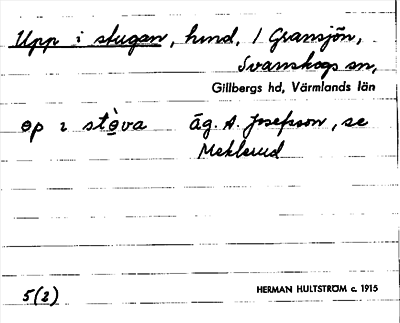 Upp i stugan, hmd, / Gransjön,
Svanskogs sn,
Gillbergs hd, Värmlands län
op i stòva äg. A. Josefsson, se
Meklerud
5(2)
HERMAN HULTSTRÖM c. 1915